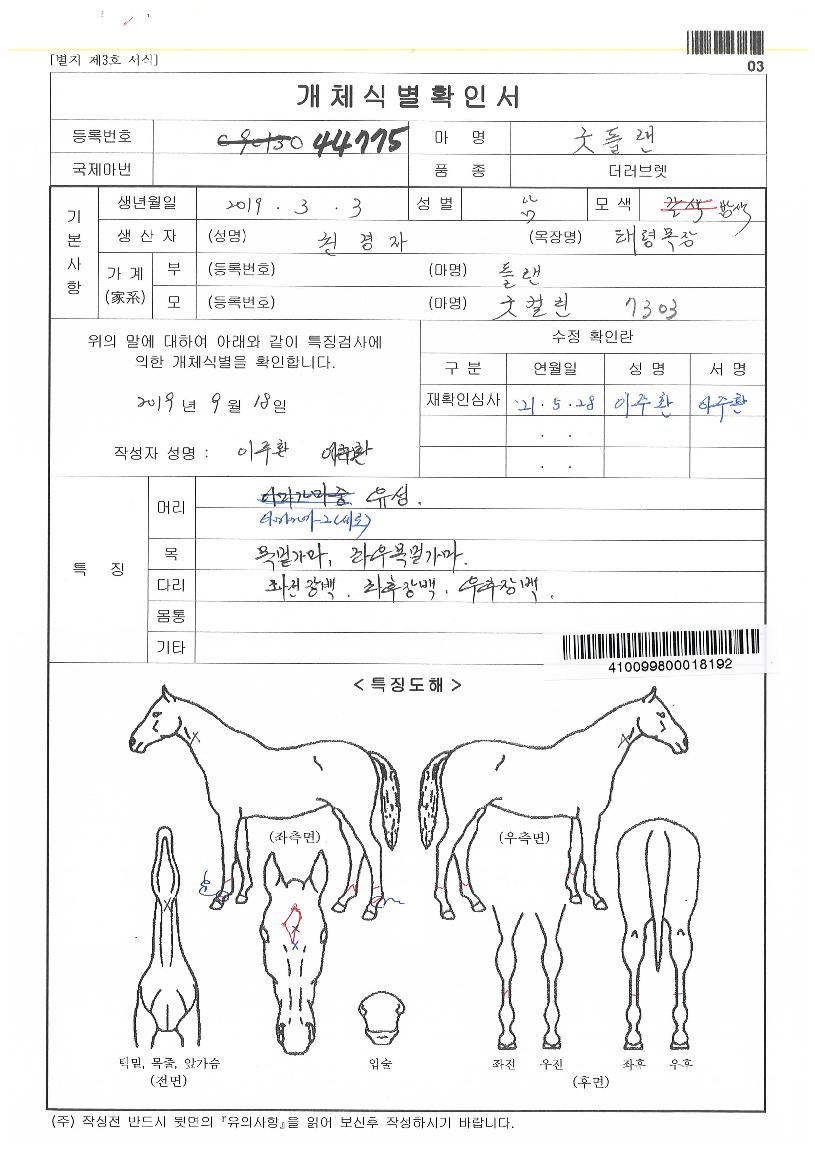 [별지 제3호 서식]
03
개체식별확인서
등록번호 44775 마 명 굿돌랜
국제마번 품 종 더러브렛
기본사항
생년월일 2019 . 3 . 3 성 별 암 모 색 갈색 밤색
생 산 자 (성명) 최경자 (목장명) 태령목장
가 계 (家系) 부 (등록번호) (마명) 돌랜
모 (등록번호) (마명) 굿컬린 7303
위의 말에 대하여 아래와 같이 특징검사에
의한 개체식별을 확인합니다.
2019 년 9 월 18 일
작성자 성명 : 이주환 이주환
수정 확인란
구 분 연월일 성 명 서 명
재확인심사 '21 . 5 . 28 이주환 이주환
. .
. .
특 징
머리 유성.
목 목멀가마, 좌우목멀가마.
다리 좌전장백. 좌후장백. 우후장백.
몸통
기타
410099800018192
< 특징도해 >
(좌측면) (우측면)
턱밑, 목줄, 앞가슴
(전면)
입술
좌전 우전 좌후 우후
(후면)
(주) 작성전 반드시 뒷면의 『유의사항』을 읽어 보신후 작성하시기 바랍니다.